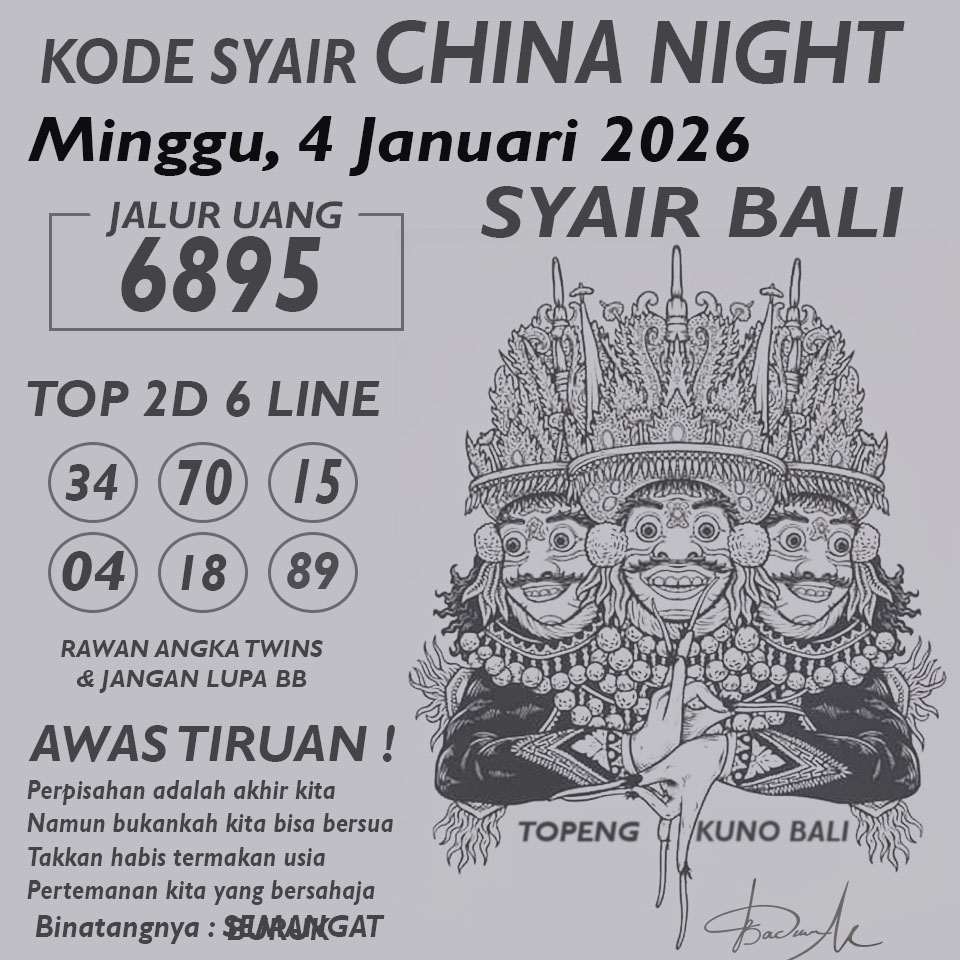 KODE SYAIR CHINA NIGHT
Minggu, 4 Januari 2026
SYAIR BALI
JALUR UANG
6895
TOP 2D 6 LINE
34 70 15
04 18 89
RAWAN ANGKA TWINS
& JANGAN LUPA BB
AWAS TIRUAN !
Perpisahan adalah akhir kita
Namun bukankah kita bisa bersua
Takkan habis termakan usia
Pertemanan kita yang bersahaja
Binatangnya :
TOPENG KUNO BALI